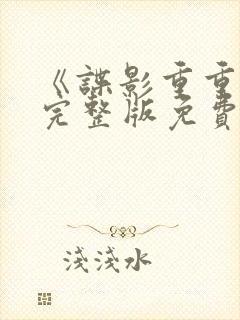 《諜影重重
完整版免費
淺淺水